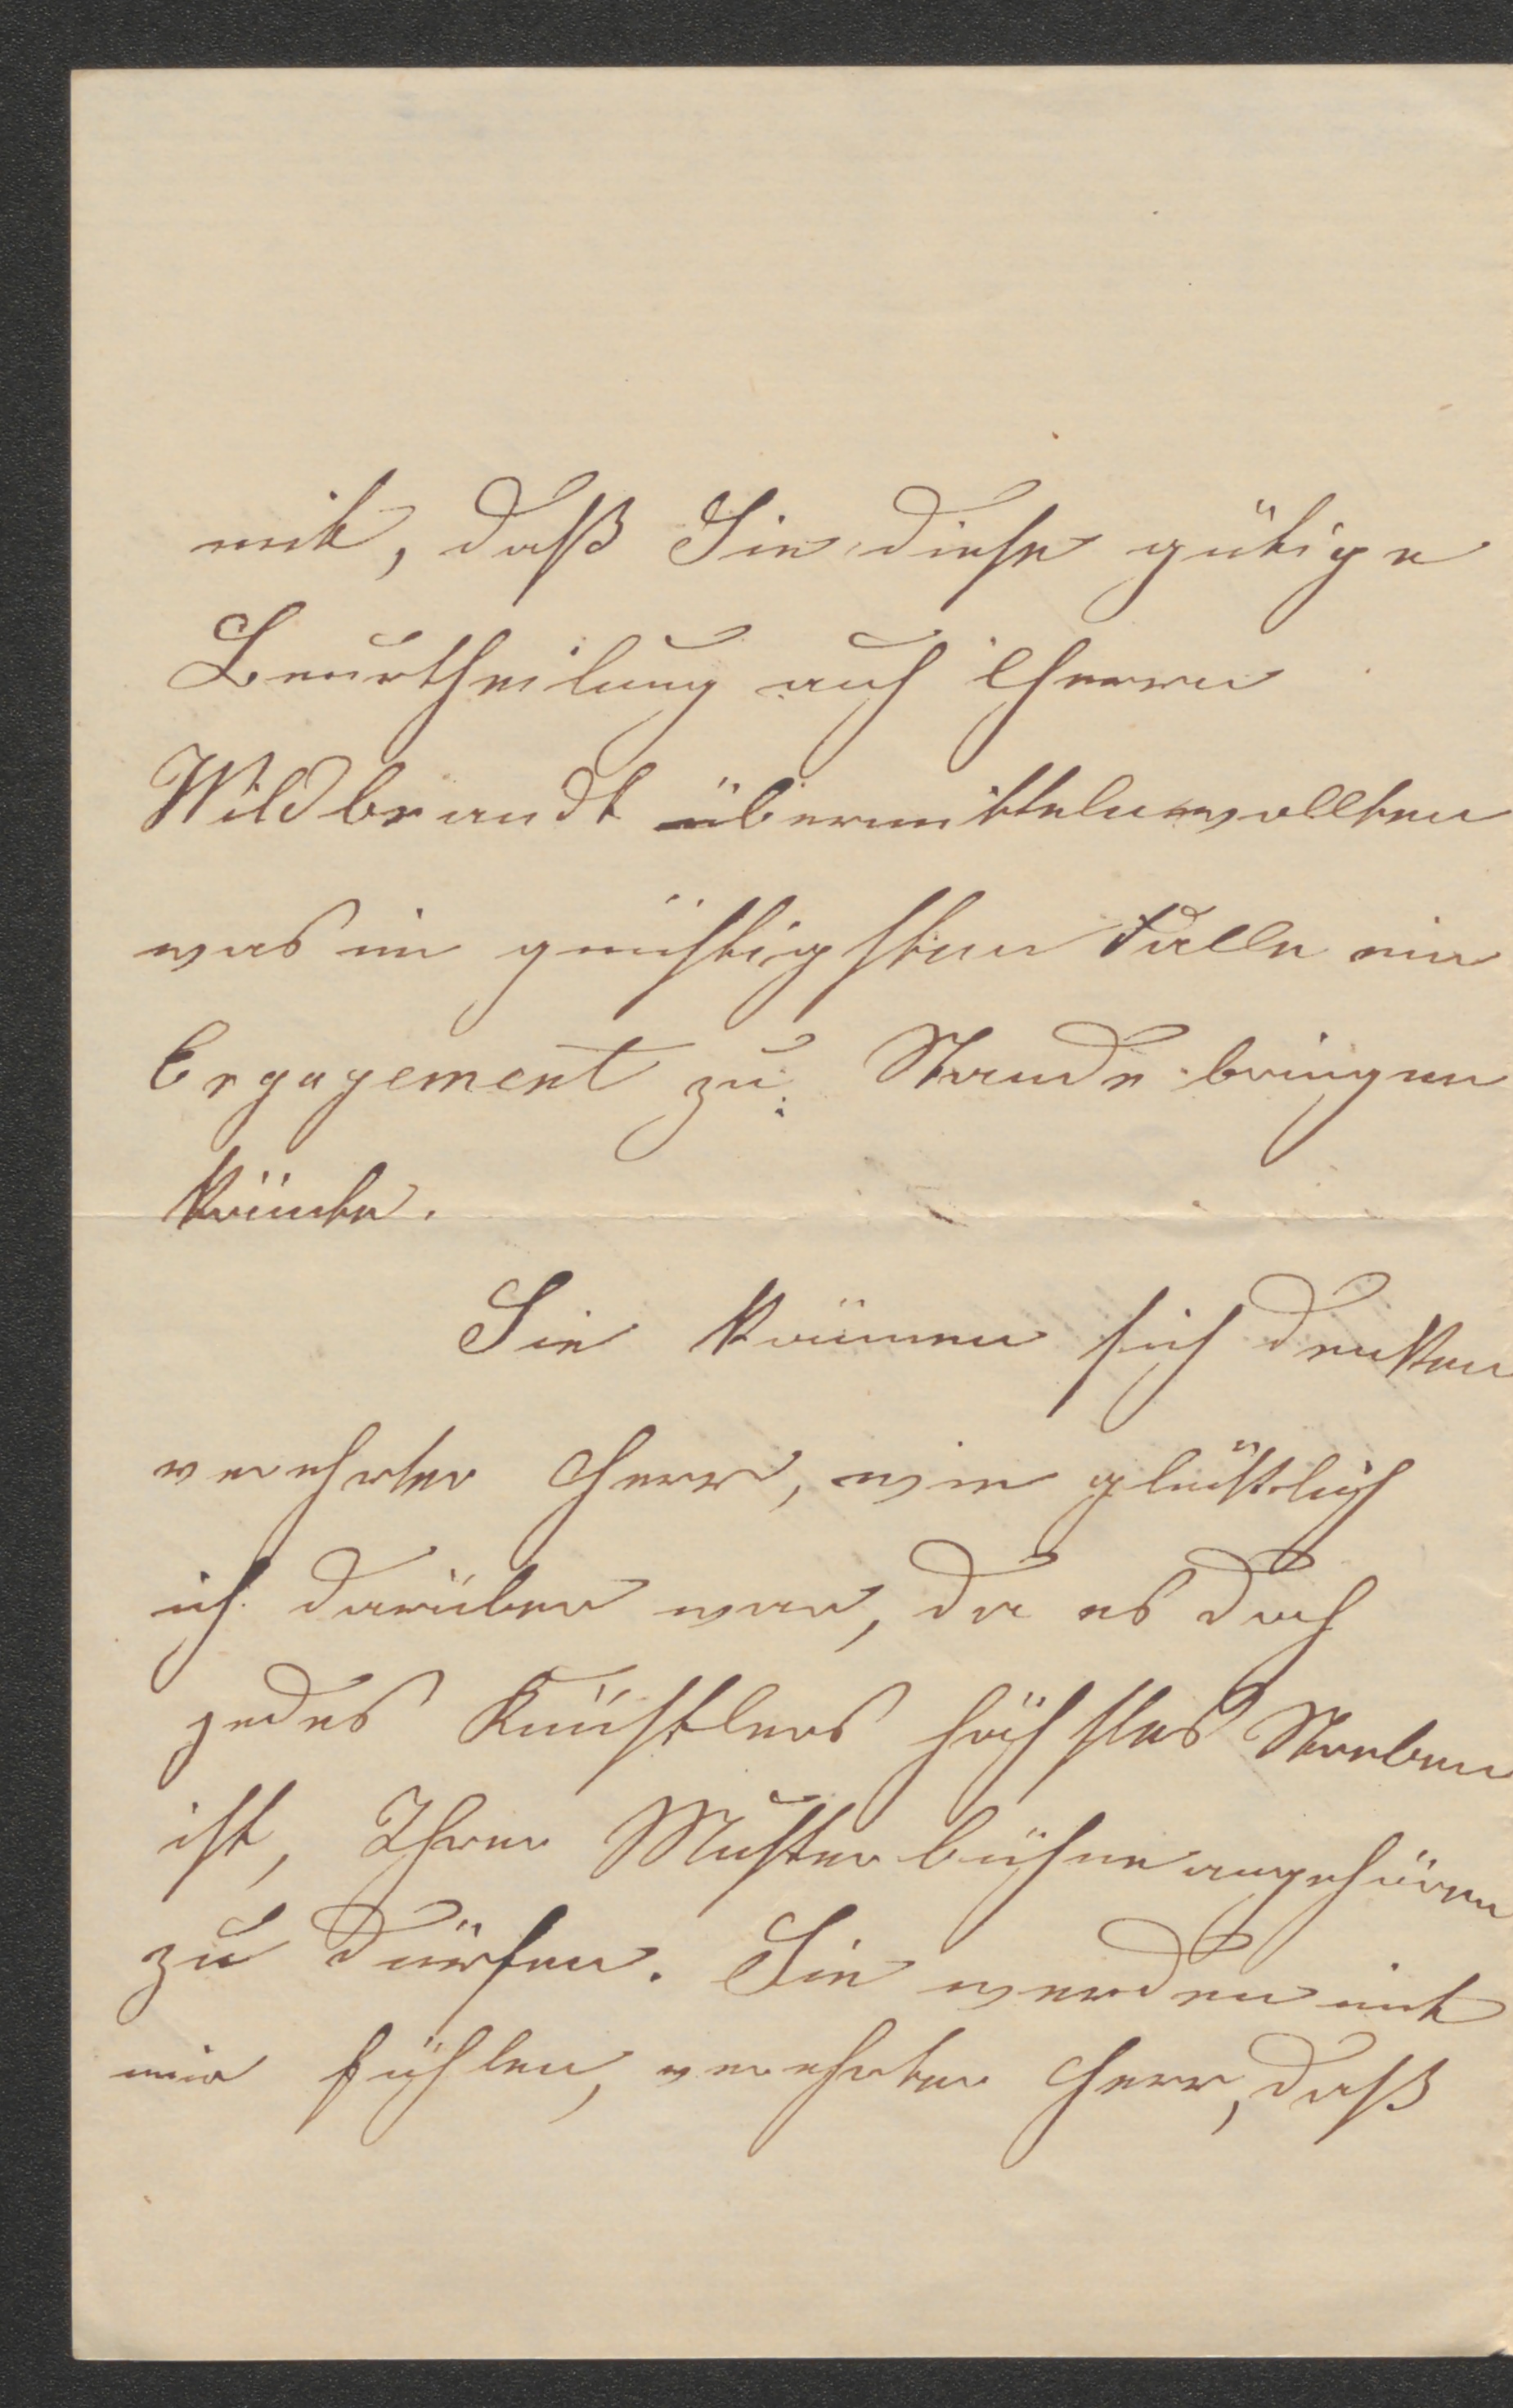 mit, daß Sie diese gütige
Beurtheilung auch Herrn
Wildbrandt übermitteln wollten
was im günstigsten Falle ein
Engagement zu Stande bringen
könnte.
Sie können sich denken
verehrter Herr, wie glücklich
ich darüber war, da es doch
jedes Künstlers höchstes Streben
ist, Ihrer Musterbühne angehören
zu dürfen. Sie werden mit
mir fühlen, verehrter Herr, daß